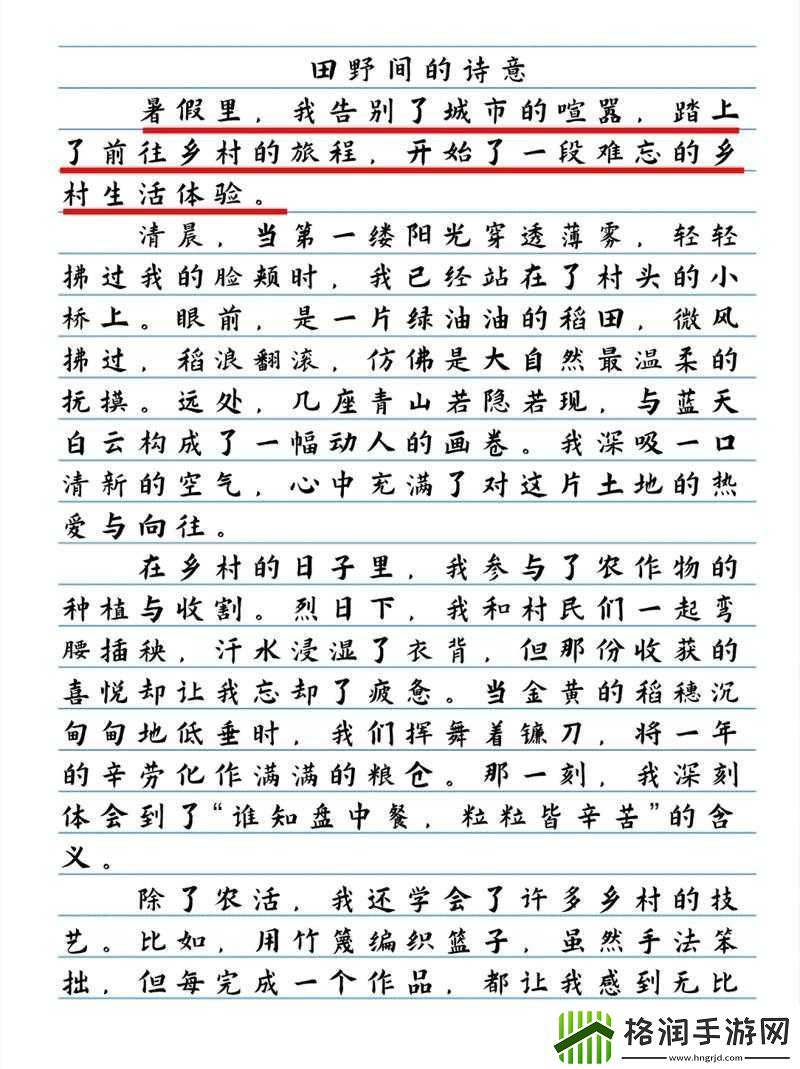 田野间的诗意
暑假里，我告别了城市的喧嚣，踏上
了前往乡村的旅程，开始了一段难忘的乡
村生活体验。
清晨，当第一缕阳光穿透薄雾，轻轻
拂过我的脸颊时，我已经站在了村头的小
桥上。眼前，是一片绿油油的稻田，微风
拂过，稻浪翻滚，仿佛是大自然最温柔的
抚摸。远处，几座青山若隐若现，与蓝天
白云构成了一幅动人的画卷。我深吸一口
清新的空气，心中充满了对这片土地的热
爱与向往。
在乡村的日子里，我参与了农作物的
种植与收割。烈日下，我和村民们一起弯
腰插秧，汗水浸湿了衣背，但那份收获的
喜悦却让我忘却了疲惫。当金黄的稻穗沉
甸甸地低垂时，我们挥舞着镰刀，将一年
的辛劳化作满满的粮仓。那一刻，我深刻
体会到了“谁知盘中餐，粒粒皆辛苦”的含
义。
除了农活，我还学会了许多乡村的技
艺。比如，用竹篾编织篮子，虽然手法笨
拙，但每完成一个作品，都让我感到无比
格润手游网
www.hngrjd.com